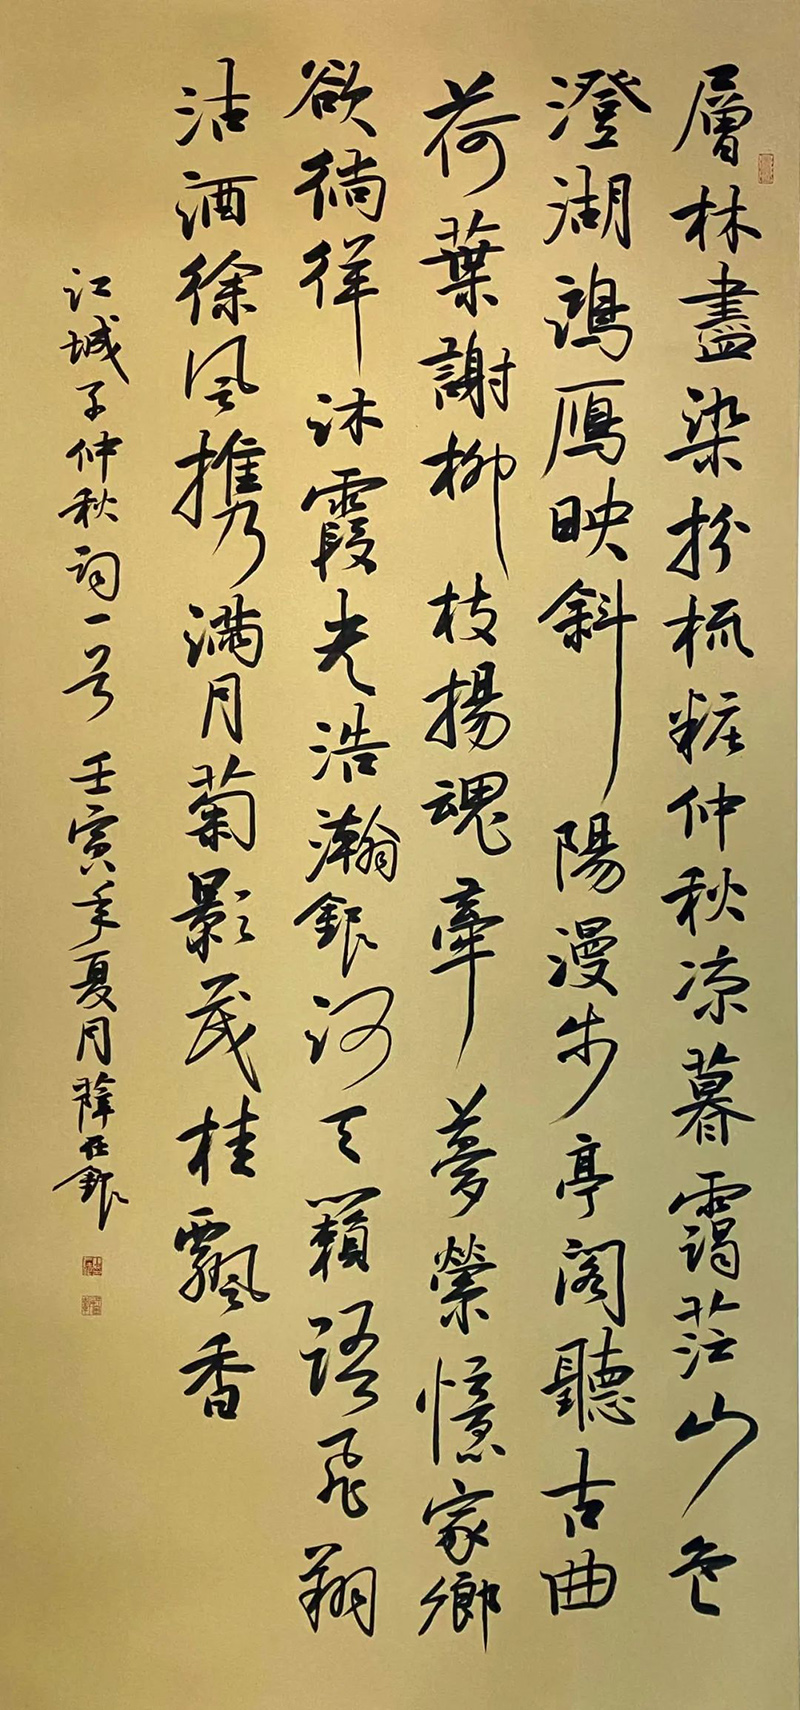 層林盡染扮梳粧仲秋凉暮靄茫山色
澄湖鴻鴈映斜陽漫步亭閣聽古曲
荷葉謝柳枝揚魂牽夢縈憶家鄉
欲徜徉沐霞光浩瀚銀河天籟語飛翔
沽酒徐風携滿月菊影茂桂飄香
江城子仲秋詞一首壬寅年夏月在銀